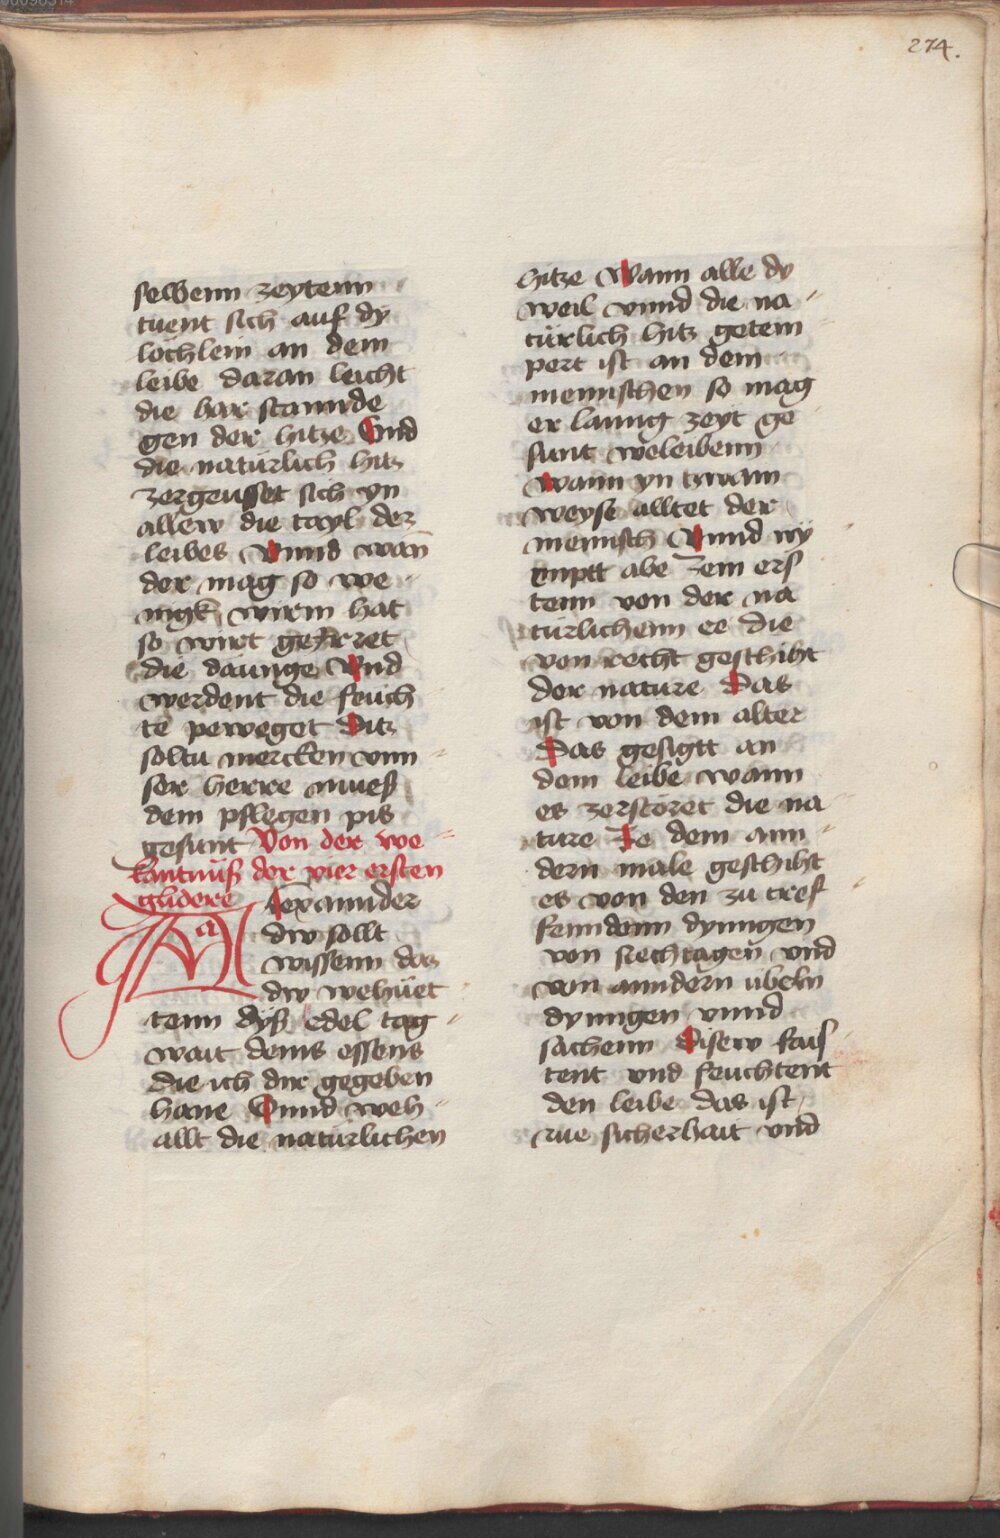 274.
selbenn zeytenn
tuent sich auf dy
löchlein an dem
leibe daran leicht
die har stannde
gen der hitze Vnd
die natürlich hitz
zergeusset sich yn
allew die tayl dez
leibes Vnnd wan̄
der mag so we
nigk wirm hat
so wirt geirret
die däunge Vnd
werdent die feuch
te peweget Ditz
soltu mercken vnn
ser herre muess
dem pflegen pis
gesunt Von der we
kantnüß der vier ersten
glidere
Alexannder
dw sollt
wissenn das
dw wehüet
tenn dyß edel tag
wait deins essens
die ich dir gegeben
hane Vnnd weh
allt die natürlichen
hitze Wann alle dy
weil vnnd die na
türlich hitz getem
pert ist an dem
mennschen so mag
er lanng zeyt ge
sunt weleibenn
Wann yn tzwain
weyse alltet der
mennsch Vnnd ny
mptt abe Zem ers
tenn von der na
türlichenn ee die
von recht geschiht
der nature Das
ist von dem alter
Das gesigtt an
dem leibe wann
es zerstöret die na
ture Ze dem ann
dern male geschiht
es von den zu tref
fenndenn dynngen
von siechtagen vnd
von anndern übeln
dynngen vnnd
sachenn Disew fais
tent vnd feuchtent
den leibe das ist
rue sicherhait vnd